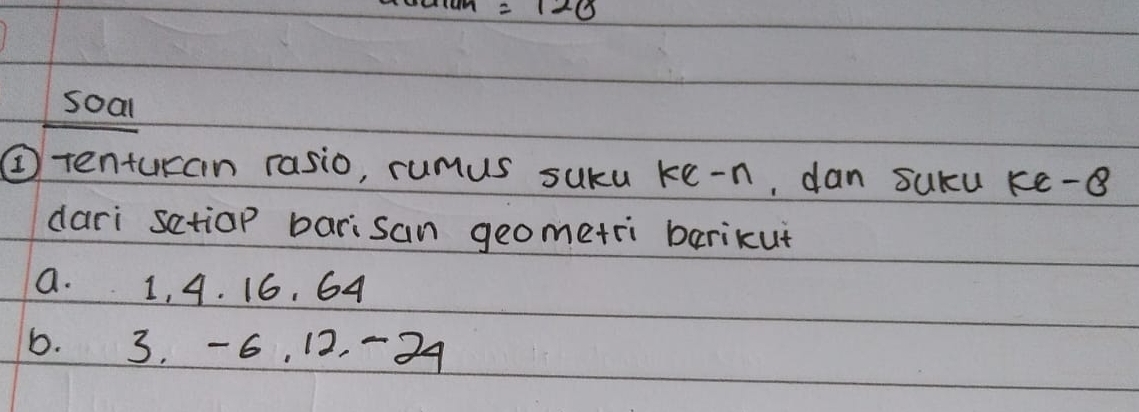 = 128
soal
① Tentukan rasio, rumus suku ke-n, dan suku ke-8
dari setiap barisan geometri berikut
a. 1, 4. 16, 64
b. 3, -6, 12, -24